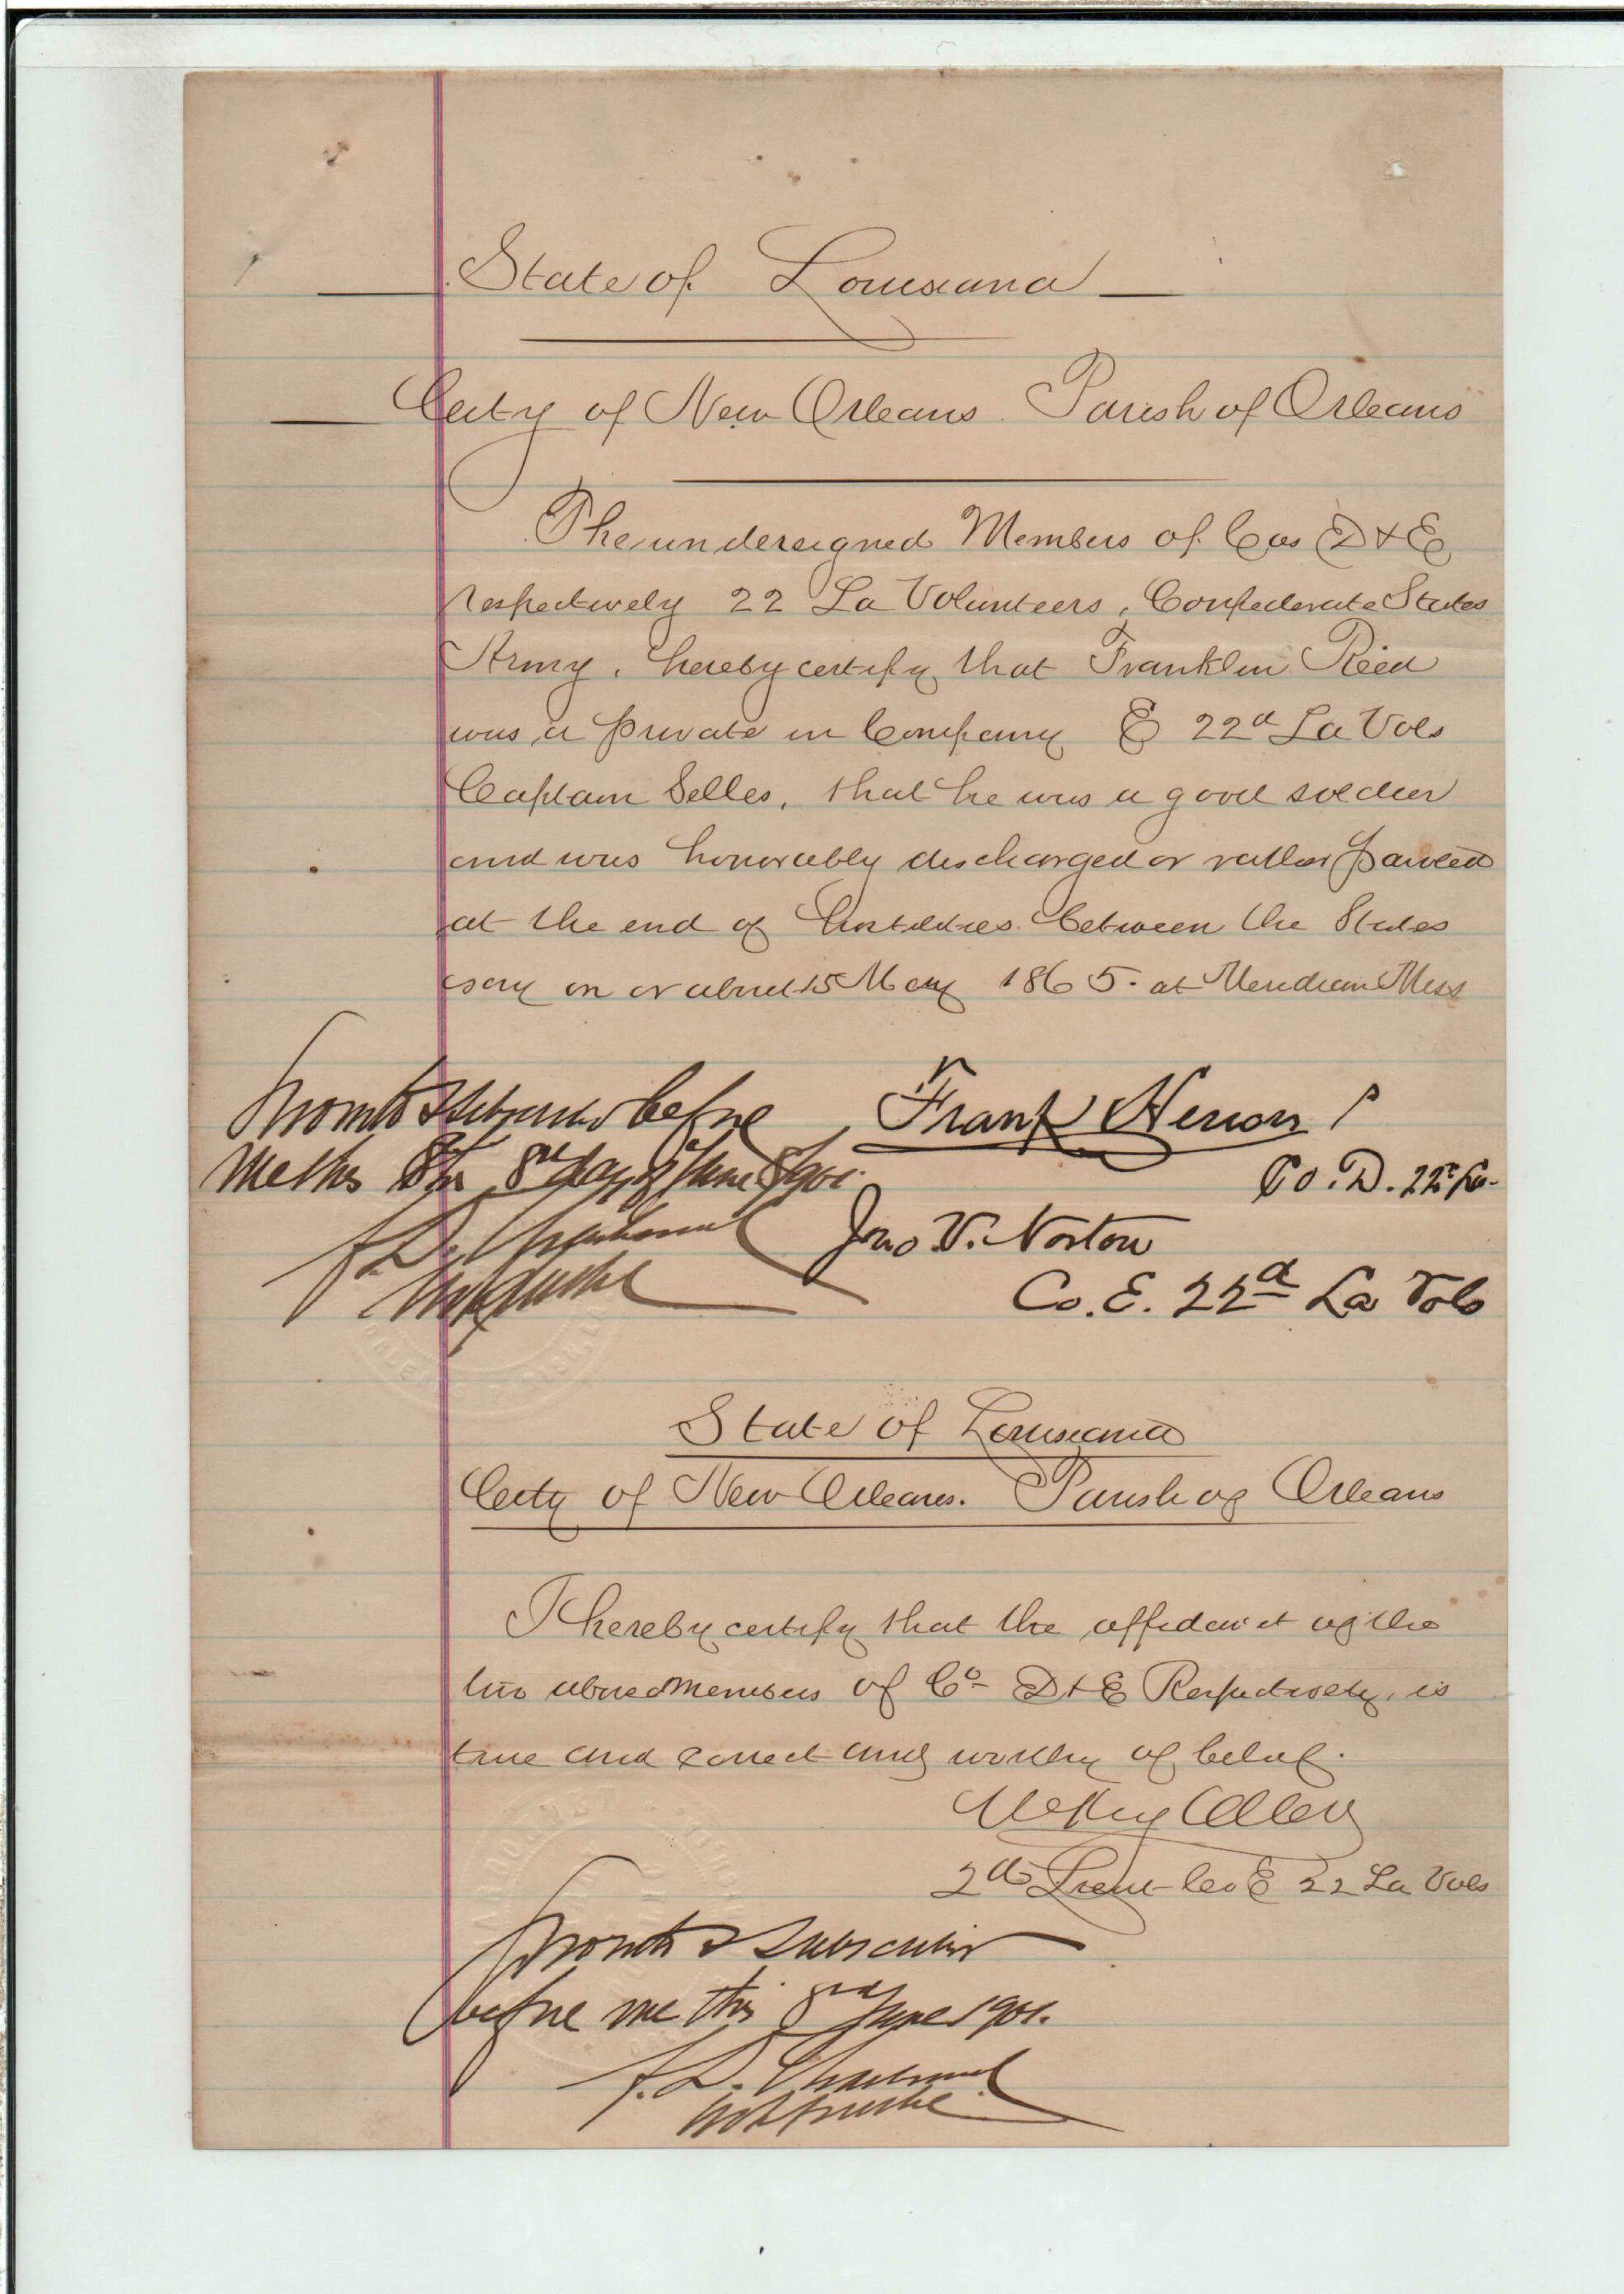 State of Louisiana
City of New Orleans Parish of Orleans
The undersigned Members of Cos D & E
respectively 22 La Volunteers, Confederate States
Army, hereby certify that Franklin Reed
was a private in Company E 22d La Vols
Captain Selles, that he was a good soldier
and was honorably discharged or rather paroled
at the end of hostilities between the States
say on or about 15 May 1865. at Meridian Miss
Sworn to & subscribed before
me this 8th day of June 1901.
Not Public
Frank
Co. D. 22d La.
Jno V. Norton
Co. E. 22d La Vols
State of Louisiana
City of New Orleans. Parish of Orleans
I hereby certify that the affidavit of the
two above members of Co D & E Respectively, is
true and correct and worthy of belief.
2d Lieut Co E 22 La Vols
Sworn to & subscribed
before me this 8th June 1901.
Not Public